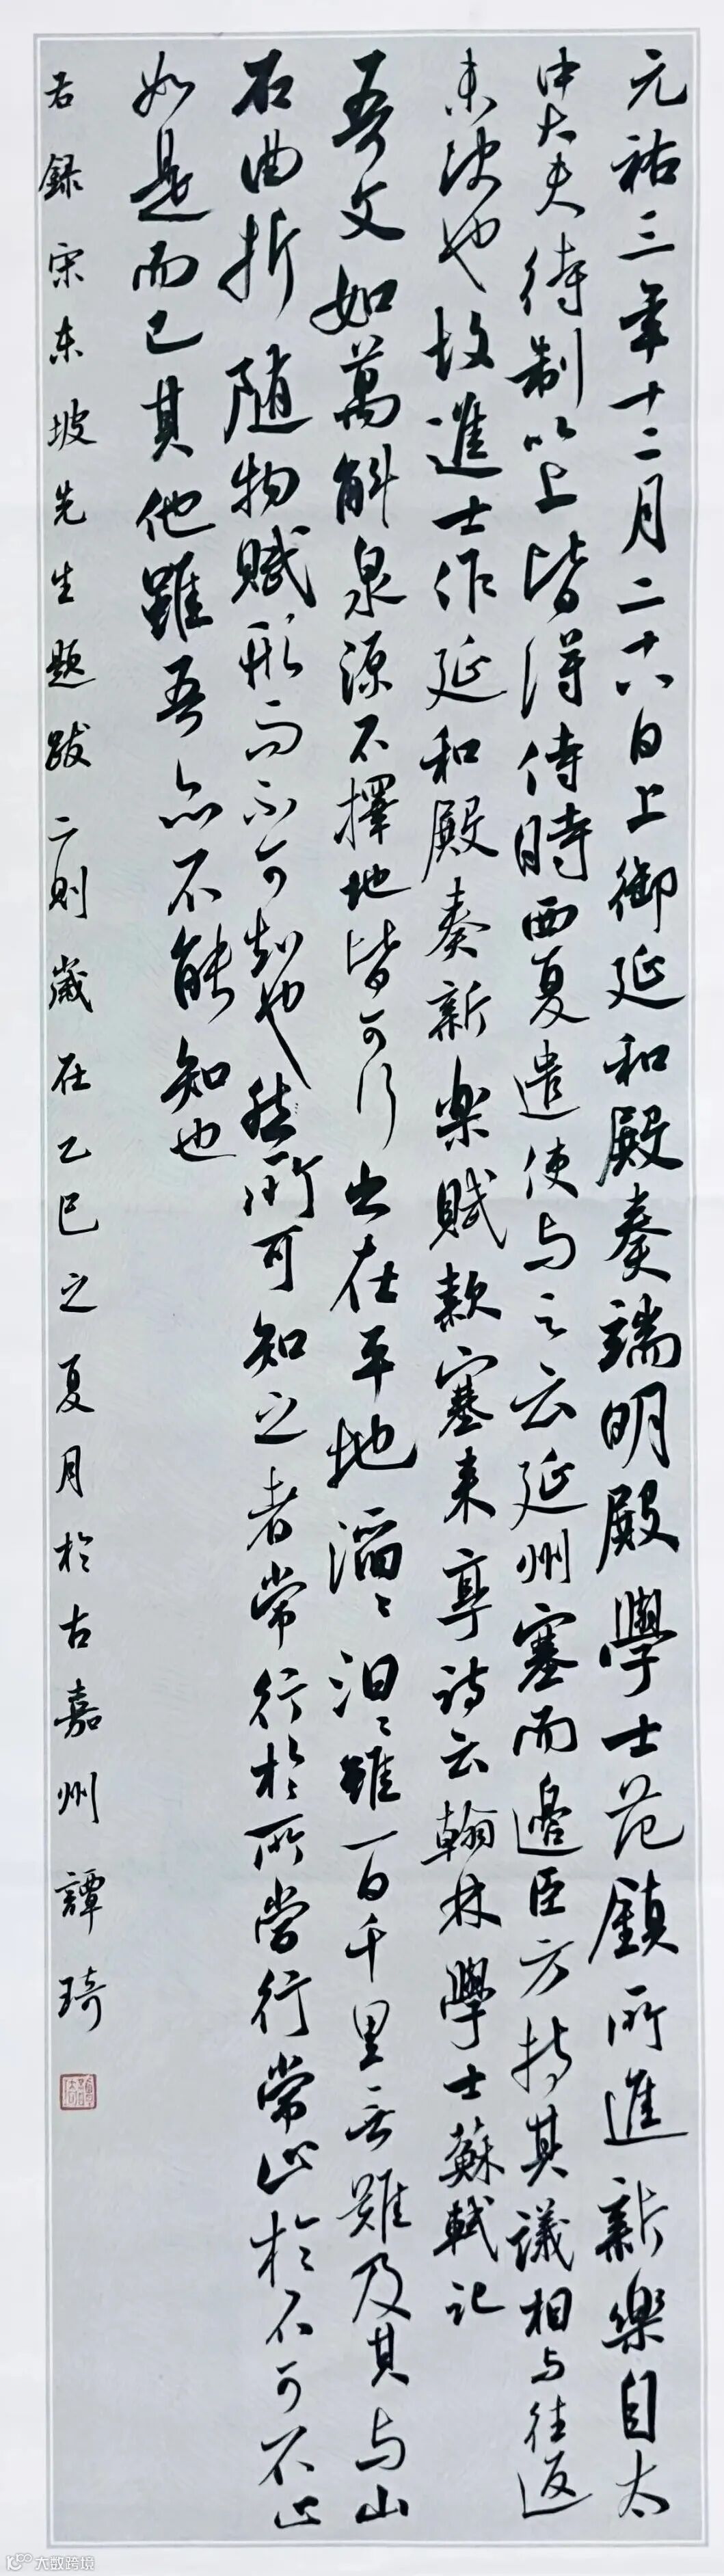 元祐三年十二月二十六日上御延和殿奏端明殿學士范鎮所進新樂自太
中大夫待制以上皆得侍時西夏遣使与之云延州塞而邊臣方持其議相与往返
未决也故進士作延和殿奏新樂賦款塞来享詩云翰林學士蘇軾記
吾文如萬斛泉源不擇地皆可行出在平地滔〻汩〻雖一百千里無難及其与山
石曲折随物賦形而不可知也然所可知之者常行於所當行常止於不可不止
如是而已其他雖吾亦不能知也
右録宋東坡先生題跋二則歲在乙巳之夏月於古嘉州譚琦
大数跨境